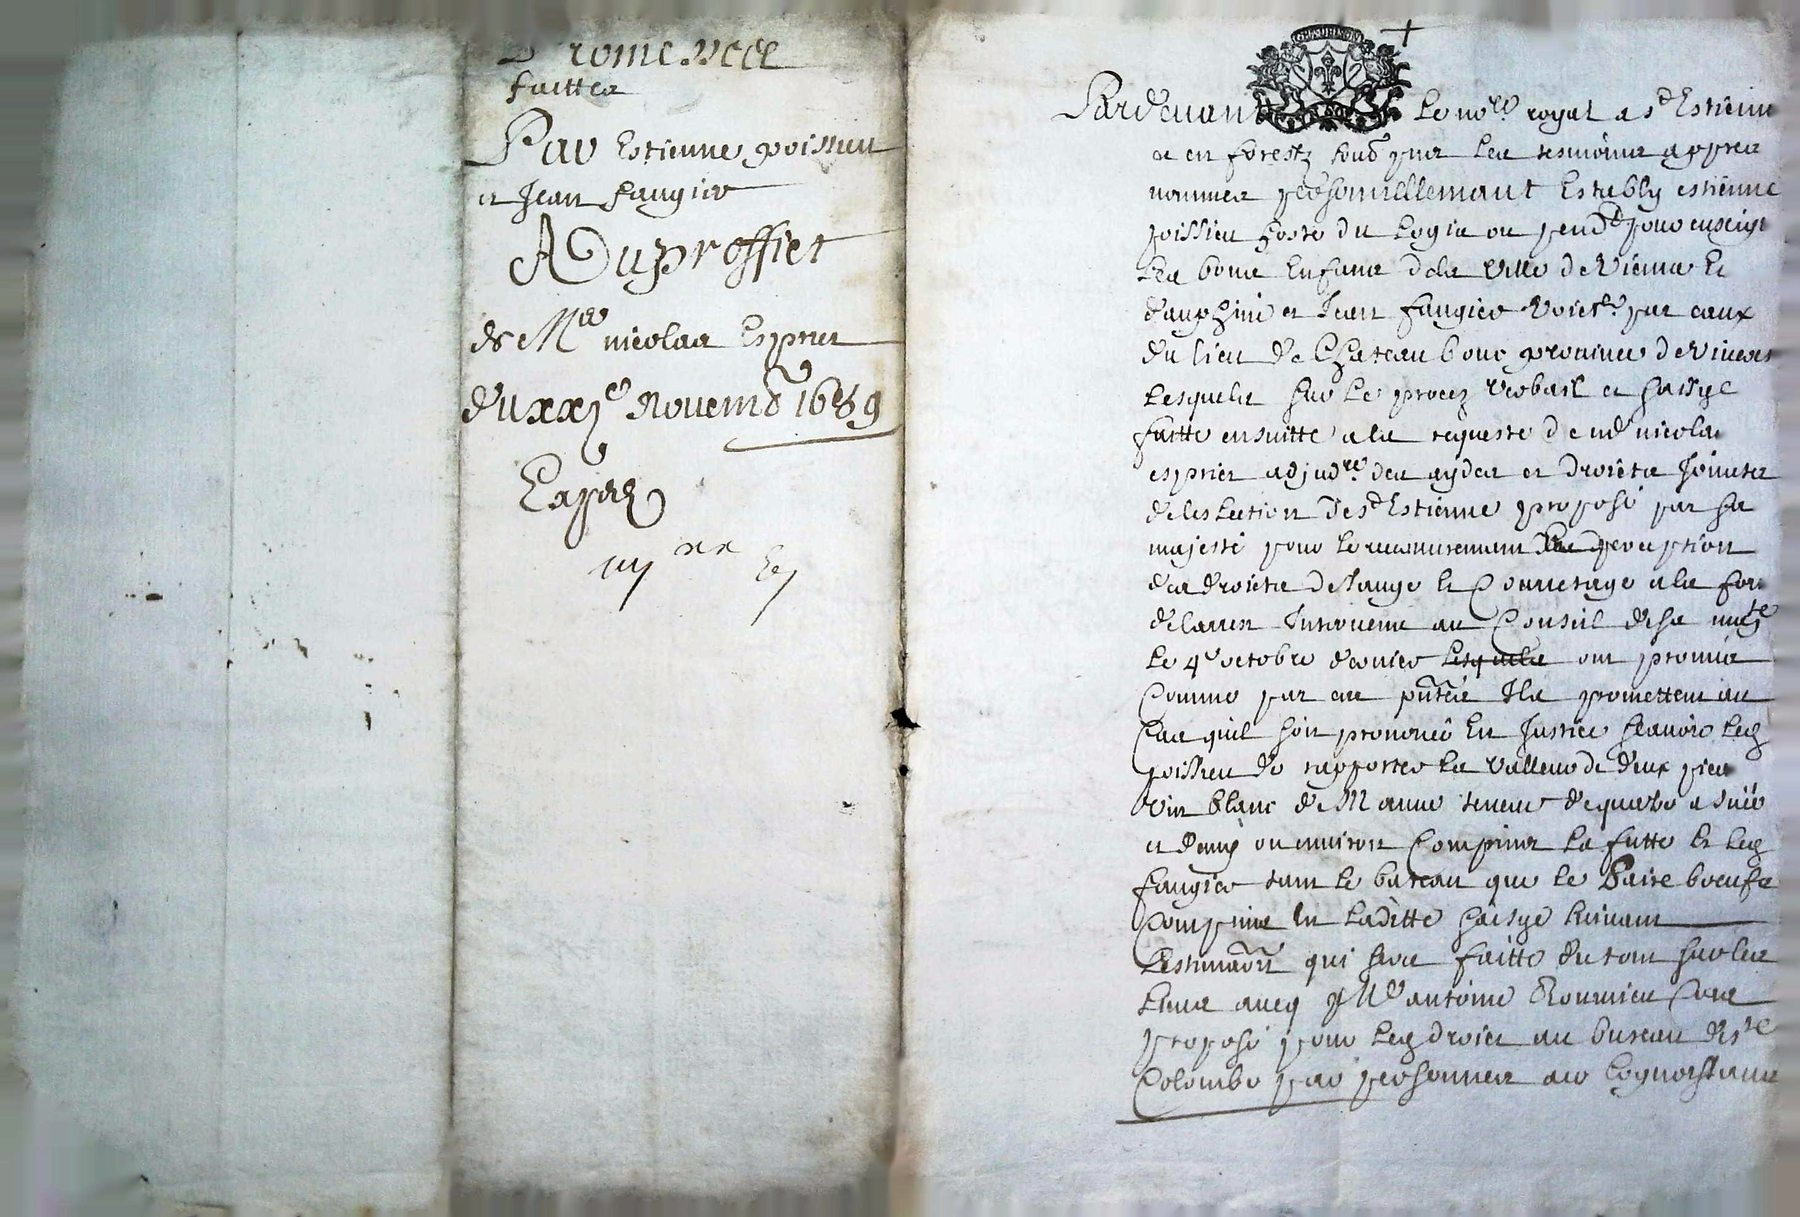 Promesses
faittes
Par Estienne poissieu
et Jean faugier
Au proffict
de Me nicolas Esprit
du xxje Novembr 1689
Expedié
Pardevant Le nore royal a st Estienne
en forestz soubz signé les tesmoins appres
nommes personnellemant Estably estienne
poissieu hoste du Logis ou pend pour enseigne
Les bons Enfans de la Ville de Vienne En
dauphiné et Jean faugier Voict par eaux
du lieu de Chateaubourg province de Vivares
Lesquels sur Le procez Verbail et saisye
faitte ensuitte a la requeste de me nicolas
esprit adjudre des aydes et droicts Joincts
de leslection de st Estienne proposé par sa
majesté pour le recouvremant perception
des droicts de Jauge et Courretage a la forme
de larrest Intervenu au Conseil de sa majte
Le 4e octobre dernier lesquels ont promis
Comme par ces pntes Ils promettent au
Cas quil soit prononcé En Justice scavoir Led
poissieu de rapporter La Valleur de deux pieces
Vin blanc de teneur de quatre asnées
et demy ou environ Comprins La futte Et Led
faugier tant le bateau que le Paire boeufs
Comprins En Laditte saisye suivant
Lestimaon qui sera faitte du tout sur les
Lieux avecq Me antoine Roumieu Comis
proposé pour Lesd droicts au bureau de ste
Colombe par personnes a ce Cognoissans